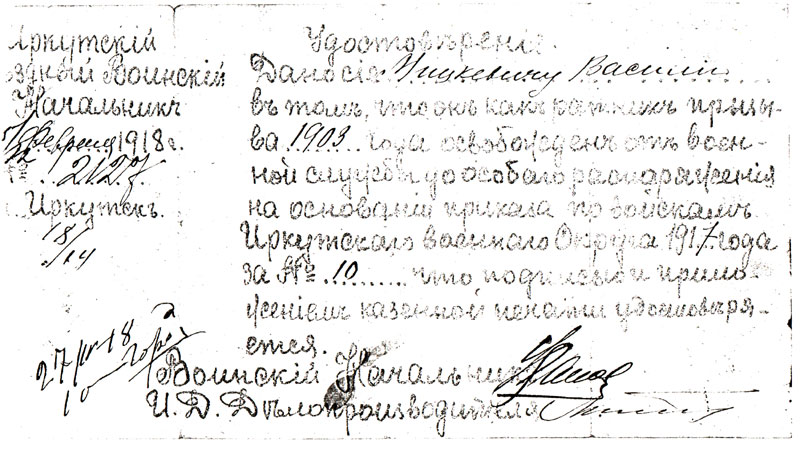 Иркутскій
Уѣздный Воинскій
Начальникъ
Февраля 1918 г.
№ 2127
г. Иркутскъ.
Удостовѣреніе.
Дано сія Ицкевичу Василію
въ томъ, что онъ какъ ратникъ призы-
ва 1903 года освобожденъ отъ воен-
ной службы до особаго распоряженія
на основаніи приказа по войскамъ
Иркутскаго военнаго Округа 1917 года
за № 10 что подписью и прило-
женіемъ казенной печати удостовѣря-
ется.
Воинскій Начальникъ
И. Д. Дѣлопроизводителя